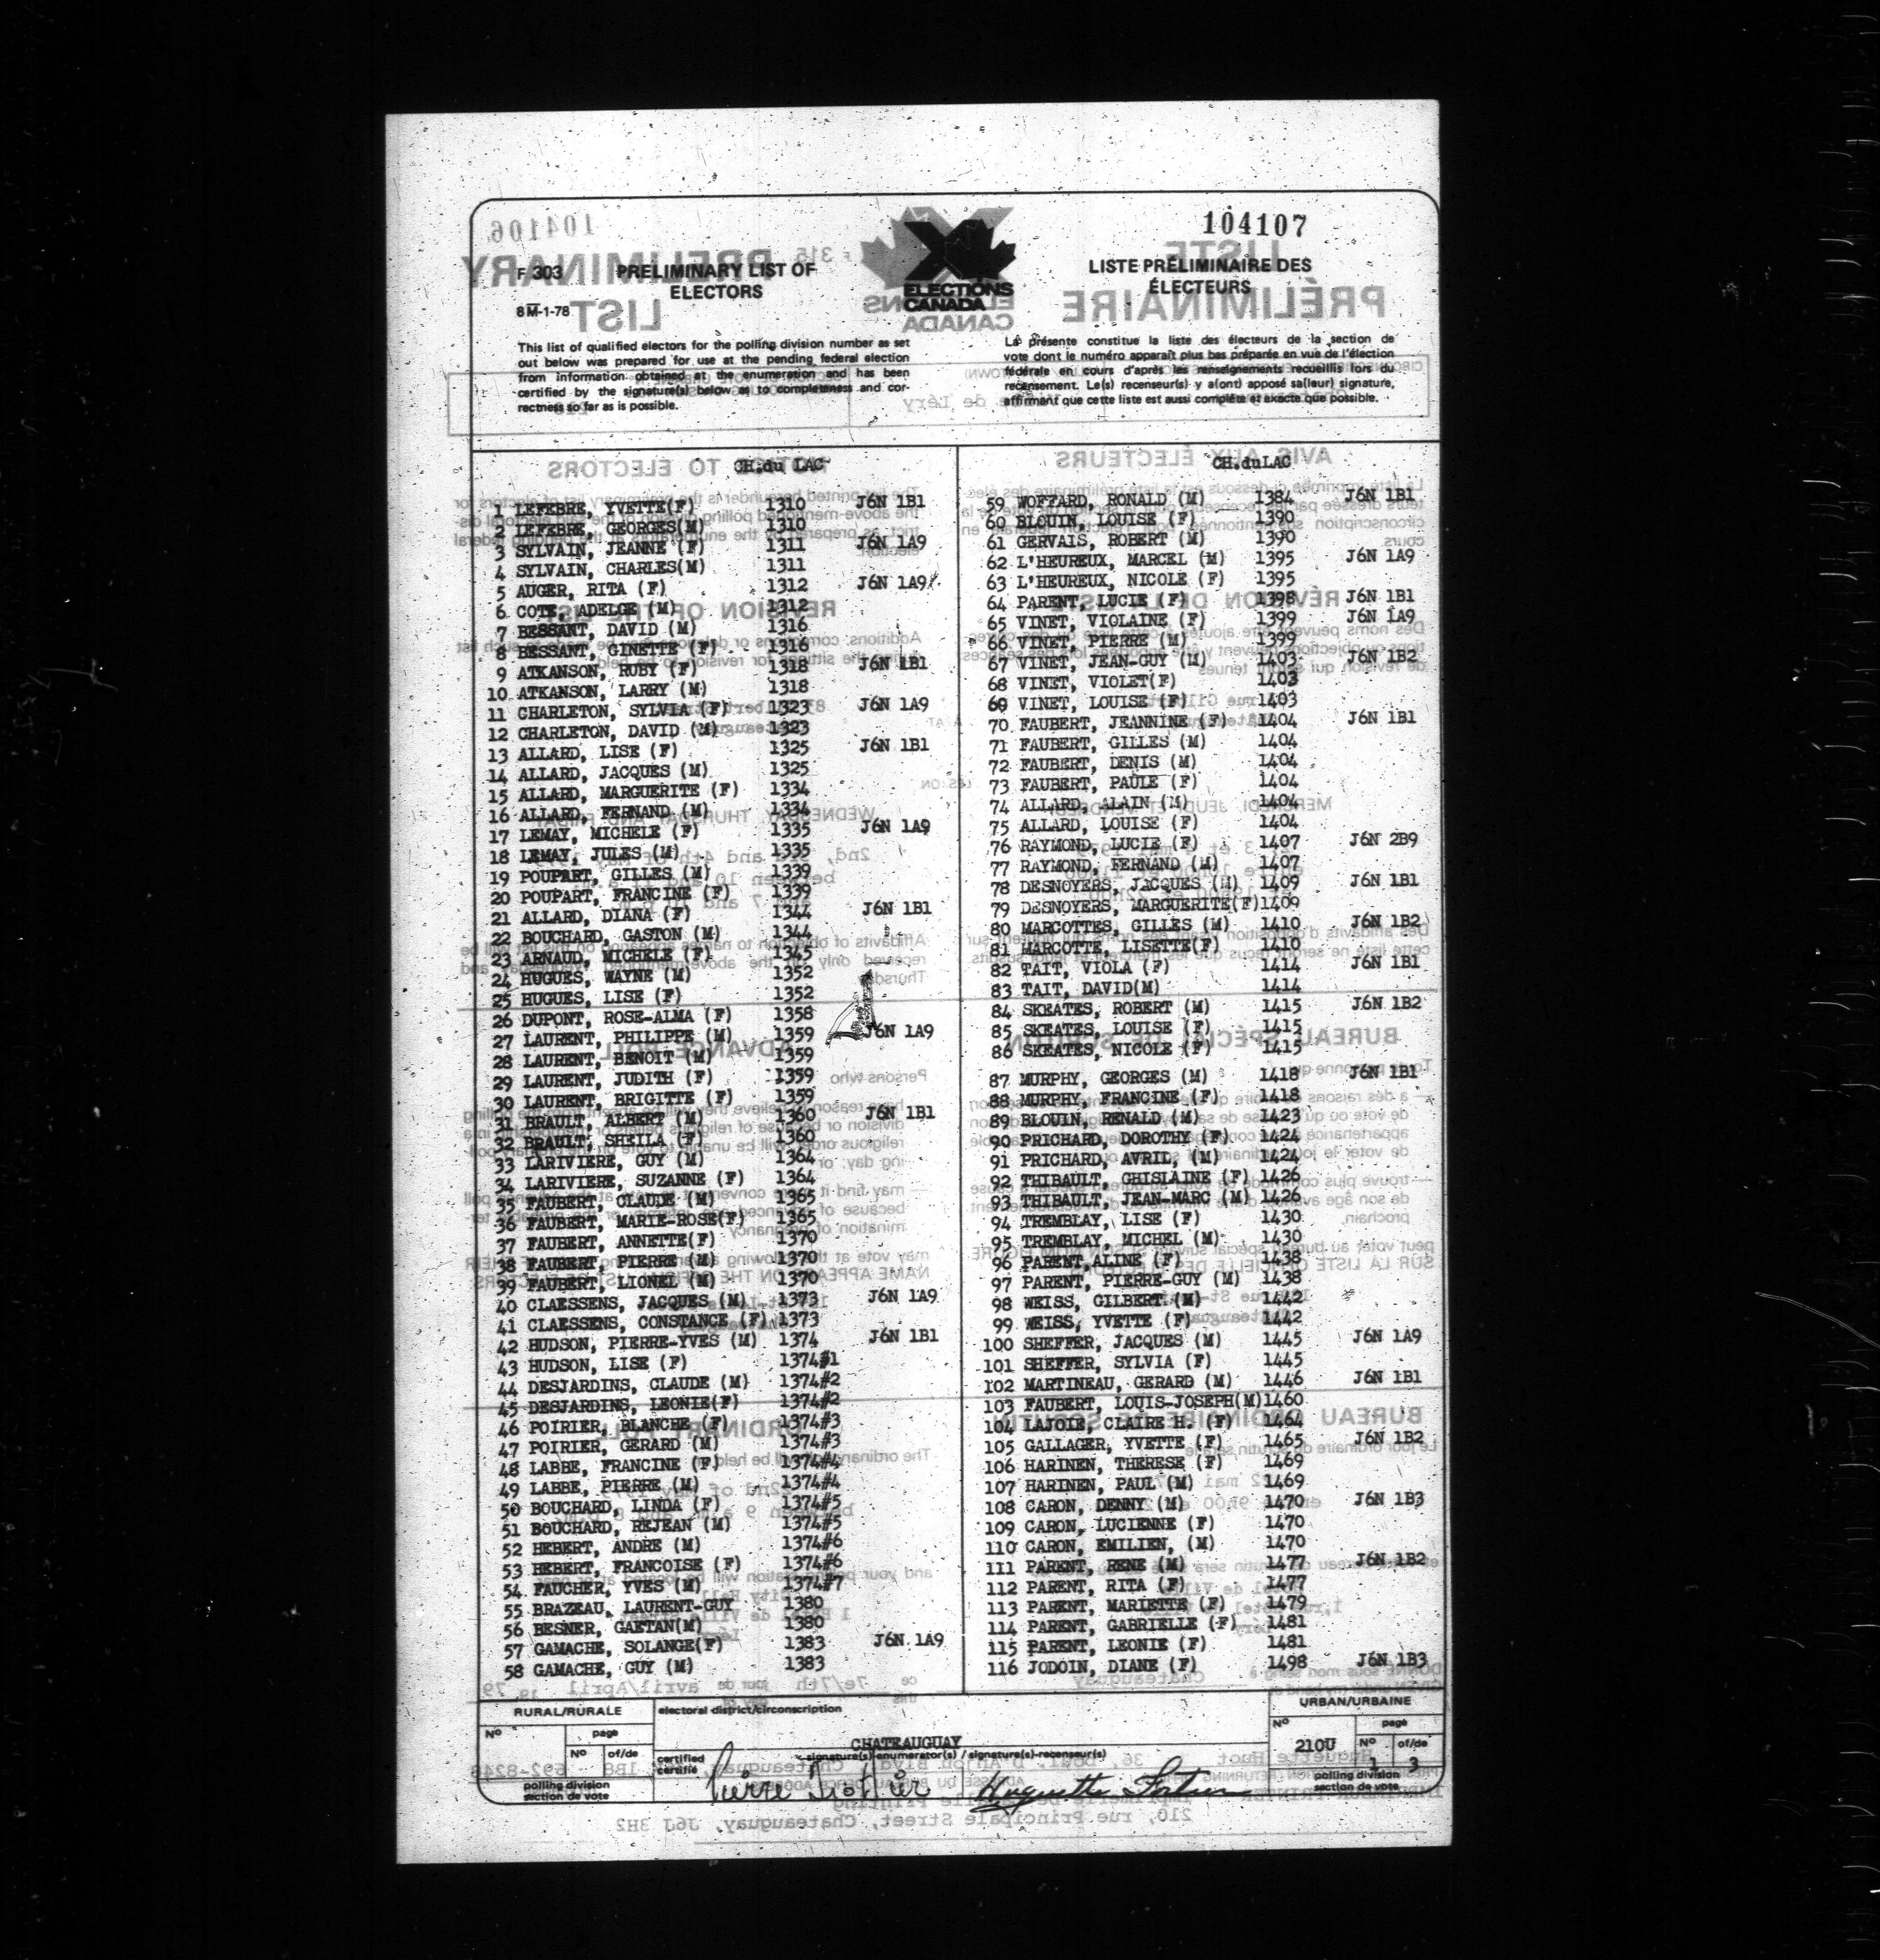 104107
F 303 PRELIMINARY LIST OF
ELECTORS
8M-1-78
ELECTIONS
CANADA
LISTE PRÉLIMINAIRE DES
ÉLECTEURS
This list of qualified electors for the polling division number as set
out below was prepared for use at the pending federal election
from information obtained at the enumeration and has been
certified by the signature(s) below as to completeness and cor-
rectness so far as is possible.
La présente constitue la liste des électeurs de la section de
vote dont le numéro apparaît plus bas préparée en vue de l'élection
fédérale en cours d'après les renseignements recueillis lors du
recensement. Le(s) recenseur(s) y a(ont) apposé sa(leur) signature,
affirmant que cette liste est aussi complète et exacte que possible.
CH.du LAC
1 LEFEBRE, YVETTE(F) 1310 J6N 1B1
2 LEFEBRE, GEORGES(M) 1310
3 SYLVAIN, JEANNE (F) 1311 J6N 1A9
4 SYLVAIN, CHARLES(M) 1311
5 AUGER, RITA (F) 1312 J6N 1A9
6 COTE, ADELGE (M) 1312
7 BESSANT, DAVID (M) 1316
8 BESSANT, GINETTE (F) 1316
9 ATKANSON, RUBY (F) 1318 J6N 1B1
10 ATKANSON, LARRY (M) 1318
11 CHARLETON, SYLVIA (F) 1323 J6N 1A9
12 CHARLETON, DAVID (M) 1323
13 ALLARD, LISE (F) 1325 J6N 1B1
14 ALLARD, JACQUES (M) 1325
15 ALLARD, MARGUERITE (F) 1334
16 ALLARD, FERNAND (M) 1334
17 LEMAY, MICHELE (F) 1335 J6N 1A9
18 LEMAY, JULES (M) 1335
19 POUPART, GILLES (M) 1339
20 POUPART, FRANCINE (F) 1339
21 ALLARD, DIANA (F) 1344 J6N 1B1
22 BOUCHARD, GASTON (M) 1344
23 ARNAUD, MICHELE (F) 1345
24 HUGUES, WAYNE (M) 1352
25 HUGUES, LISE (F) 1352
26 DUPONT, ROSE-ALMA (F) 1358
27 LAURENT, PHILIPPE (M) 1359 J6N 1A9
28 LAURENT, BENOIT (M) 1359
29 LAURENT, JUDITH (F) 1359
30 LAURENT, BRIGITTE (F) 1359
31 BRAULT, ALBERT (M) 1360 J6N 1B1
32 BRAULT, SHEILA (F) 1360
33 LARIVIERE, GUY (M) 1364
34 LARIVIERE, SUZANNE (F) 1364
35 FAUBERT, CLAUDE (M) 1365
36 FAUBERT, MARIE-ROSE(F) 1365
37 FAUBERT, ANNETTE(F) 1370
38 FAUBERT, PIERRE (M) 1370
39 FAUBERT, LIONEL (M) 1370
40 CLAESSENS, JACQUES (M) 1373 J6N 1A9
41 CLAESSENS, CONSTANCE (F) 1373
42 HUDSON, PIERRE-YVES (M) 1374 J6N 1B1
43 HUDSON, LISE (F) 1374#1
44 DESJARDINS, CLAUDE (M) 1374#2
45 DESJARDINS, LEONIE(F) 1374#2
46 POIRIER, BLANCHE (F) 1374#3
47 POIRIER, GERARD (M) 1374#3
48 LABBE, FRANCINE (F) 1374#4
49 LABBE, PIERRE (M) 1374#4
50 BOUCHARD, LINDA (F) 1374#5
51 BOUCHARD, REJEAN (M) 1374#5
52 HEBERT, ANDRE (M) 1374#6
53 HEBERT, FRANCOISE (F) 1374#6
54 FAUCHER, YVES (M) 1374#7
55 BRAZEAU, LAURENT-GUY 1380
56 BESNER, GAETAN(M) 1380
57 GAMACHE, SOLANGE(F) 1383 J6N 1A9
58 GAMACHE, GUY (M) 1383
CH.duLAC
59 WOFFARD, RONALD (M) 1384 J6N 1B1
60 BLOUIN, LOUISE (F) 1390
61 GERVAIS, ROBERT (M) 1390
62 L'HEUREUX, MARCEL (M) 1395 J6N 1A9
63 L'HEUREUX, NICOLE (F) 1395
64 PARENT, LUCIE (F) 1398 J6N 1B1
65 VINET, VIOLAINE (F) 1399 J6N 1A9
66 VINET, PIERRE (M) 1399
67 VINET, JEAN-GUY (M) 1403 J6N 1B2
68 VINET, VIOLET(F) 1403
69 VINET, LOUISE (F) 1403
70 FAUBERT, JEANNINE (F) 1404 J6N 1B1
71 FAUBERT, GILLES (M) 1404
72 FAUBERT, DENIS (M) 1404
73 FAUBERT, PAULE (F) 1404
74 ALLARD, ALAIN (M) 1404
75 ALLARD, LOUISE (F) 1404
76 RAYMOND, LUCIE (F) 1407 J6N 2B9
77 RAYMOND, FERNAND (M) 1407
78 DESNOYERS, JACQUES (M) 1409 J6N 1B1
79 DESNOYERS, MARGUERITE(F)1409
80 MARCOTTES, GILLES (M) 1410 J6N 1B2
81 MARCOTTE, LISETTE(F) 1410
82 TAIT, VIOLA (F) 1414 J6N 1B1
83 TAIT, DAVID(M) 1414
84 SKEATES, ROBERT (M) 1415 J6N 1B2
85 SKEATES, LOUISE (F) 1415
86 SKEATES, NICOLE (F) 1415
87 MURPHY, GEORGES (M) 1418 J6N 1B1
88 MURPHY, FRANCINE (F) 1418
89 BLOUIN, RENALD (M) 1423
90 PRICHARD, DOROTHY (F) 1424
91 PRICHARD, AVRIL, (M) 1424
92 THIBAULT, GHISLAINE (F) 1426
93 THIBAULT, JEAN-MARC (M) 1426
94 TREMBLAY, LISE (F) 1430
95 TREMBLAY, MICHEL (M) 1430
96 PARENT,ALINE (F) 1438
97 PARENT, PIERRE-GUY (M) 1438
98 WEISS, GILBERT (M) 1442
99 WEISS, YVETTE (F) 1442
100 SHEFFER, JACQUES (M) 1445 J6N 1A9
101 SHEFFER, SYLVIA (F) 1445
102 MARTINEAU, GERARD (M) 1446 J6N 1B1
103 FAUBERT, LOUIS-JOSEPH(M)1460
104 LAJOIE, CLAIRE H. (F) 1464
105 GALLAGER, YVETTE (F) 1465 J6N 1B2
106 HARINEN, THERESE (F) 1469
107 HARINEN, PAUL (M) 1469
108 CARON, DENNY (M) 1470 J6N 1B3
109 CARON, LUCIENNE (F) 1470
110 CARON, EMILIEN, (M) 1470
111 PARENT, RENE (M) 1477 J6N 1B2
112 PARENT, RITA (F) 1477
113 PARENT, MARIETTE (F) 1479
114 PARENT, GABRIELLE (F) 1481
115 PARENT, LEONIE (F) 1481
116 JODOIN, DIANE (F) 1498 J6N 1B3
RURAL/RURALE
No page
No of/de
polling division
section de vote
electoral district/circonscription
CHATEAUGUAY
certified
certifié
signature(s)-enumerator(s) / signature(s)-recenseur(s)
Pierre
Huguette
URBAN/URBAINE
No page
210U No of/de
1 3
polling division
section de vote